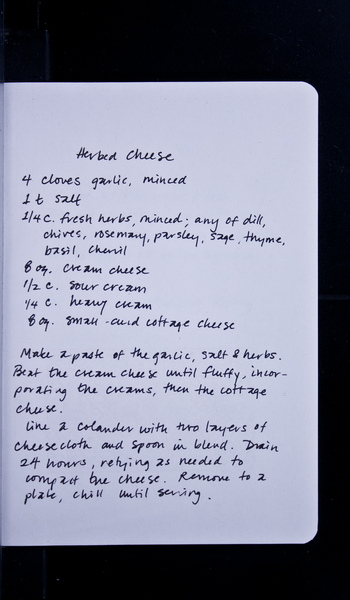 Herbed Cheese
4 cloves garlic, minced
1 t salt
1/4 c. fresh herbs, minced; any of dill,
chives, rosemary, parsley, sage, thyme,
basil, chervil
8 oz. cream cheese
1/2 c. sour cream
1/4 c. heavy cream
8 oz. small-curd cottage cheese
Make a paste of the garlic, salt & herbs.
Beat the cream cheese until fluffy, incor-
porating the creams, then the cottage
cheese.
Line a colander with two layers of
cheesecloth and spoon in blend. Drain
24 hours, retying as needed to
compact the cheese. Remove to a
plate, chill until serving.